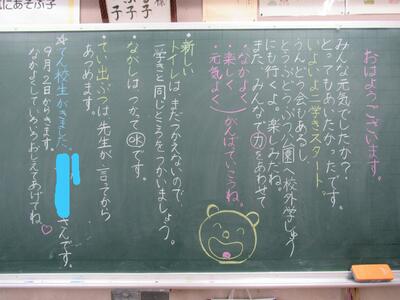 おはようございます。
みんな元気でしたか?
とってもあいたかったです。
いよいよ二学きスタート
うんどう会もあるし、
とうぶどうぶつ公園へ校外学しゅう
にも行くよ。楽しみだね。
また、みんなで力をあわせて
・なかよく
・楽しく
・元気よく
がんばっていこうね。
★新しい
トイレはまだつかえないので
一学きと同じところをつかいましょう。
・ながしはつかってOKです。
・てい出ぶつは先生が言ってから
あつめます。
☆てん校生がきました。
9月2日からきます。
さんです。
なかよくしていろいろおしえてあげてね。♡
にあそぶ子
子
子